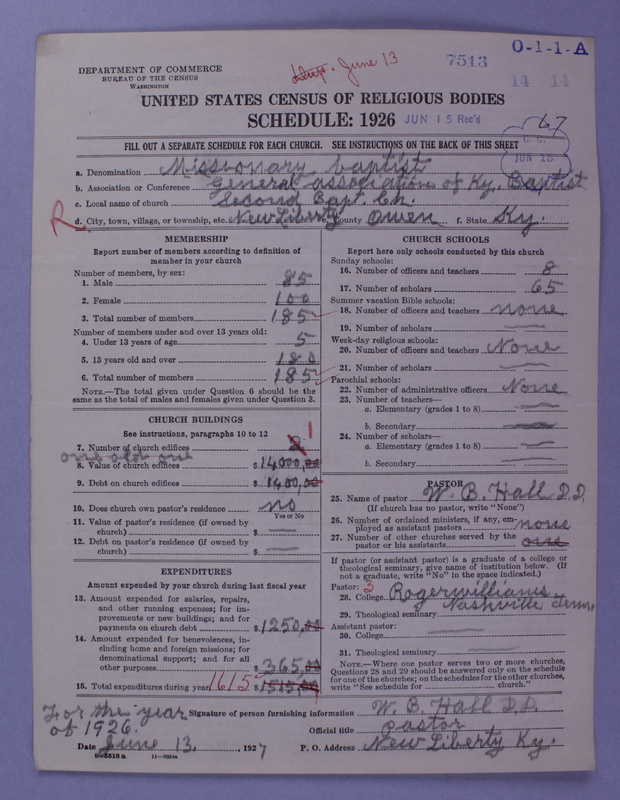 7513
O-1-1-A
June 13
14 14
DEPARTMENT OF COMMERCE
BUREAU OF THE CENSUS
WASHINGTON
UNITED STATES CENSUS OF RELIGIOUS BODIES
SCHEDULE: 1926 JUN 15 Rec'd
67
JUN 15
FILL OUT A SEPARATE SCHEDULE FOR EACH CHURCH. SEE INSTRUCTIONS ON THE BACK OF THIS SHEET
a. Denomination Missionary baptist
b. Association or Conference General association of Ky. Baptist
c. Local name of church Second Bapt. Ch.
R
d. City, town, village, or township, etc. New Liberty e. County Owen f. State Ky.
MEMBERSHIP
Report number of members according to definition of
member in your church
Number of members, by sex:
1. Male 85
2. Female 100
3. Total number of members 185
Number of members under and over 13 years old:
4. Under 13 years of age 5
5. 13 years old and over 180
6. Total number of members 185
NOTE.—The total given under Question 6 should be the
same as the total of males and females given under Question 3.
CHURCH BUILDINGS
See instructions, paragraphs 10 to 12
7. Number of church edifices 2 1
one old one
8. Value of church edifices $14000,00
9. Debt on church edifices $1400,00
10. Does church own pastor's residence no
Yes or No
11. Value of pastor's residence (if owned by
church) $
12. Debt on pastor's residence (if owned by
church) $
EXPENDITURES
Amount expended by your church during last fiscal year
13. Amount expended for salaries, repairs,
and other running expenses; for im-
provements or new buildings; and for
payments on church debt $1250,00
14. Amount expended for benevolences, in-
cluding home and foreign missions; for
denominational support; and for all
other purposes $365,00
15. Total expenditures during year 1615 $1515,00
CHURCH SCHOOLS
Report here only schools conducted by this church
Sunday schools:
16. Number of officers and teachers 8
17. Number of scholars 65
Summer vacation Bible schools:
18. Number of officers and teachers none
19. Number of scholars
Week-day religious schools:
20. Number of officers and teachers None
21. Number of scholars
Parochial schools:
22. Number of administrative officers None
23. Number of teachers—
a. Elementary (grades 1 to 8)
b. Secondary
24. Number of scholars—
a. Elementary (grades 1 to 8)
b. Secondary
PASTOR
25. Name of pastor W. B. Hall D.D.
(If church has no pastor, write "None")
26. Number of ordained ministers, if any, em-
ployed as assistant pastors none
27. Number of other churches served by the
pastor or his assistants one
If pastor (or assistant pastor) is a graduate of a college or
theological seminary, give name of institution below. (If
not a graduate, write "No" in the space indicated.)
Pastor: 3
28. College Roger williams
Nashville Tenn
29. Theological seminary
Assistant pastor:
30. College
31. Theological seminary
NOTE.—Where one pastor serves two or more churches,
Questions 28 and 29 should be answered only on the schedule
for one of the churches; on the schedules for the other churches,
write "See schedule for church."
For the year
of 1926.
Signature of person furnishing information W. B. Hall D.D.
Official title pastor
Date June 13, 1927 P. O. Address New Liberty Ky.
8-5518a 11-9004a